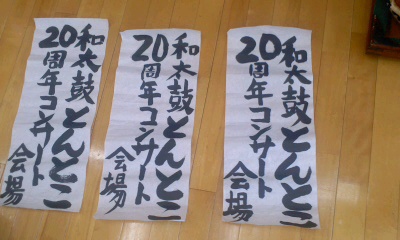 和太鼓とんとこ
20周年コンサート
会場
和太鼓とんとこ
20周年コンサート
会場
和太鼓とんとこ
20周年コンサート
会場